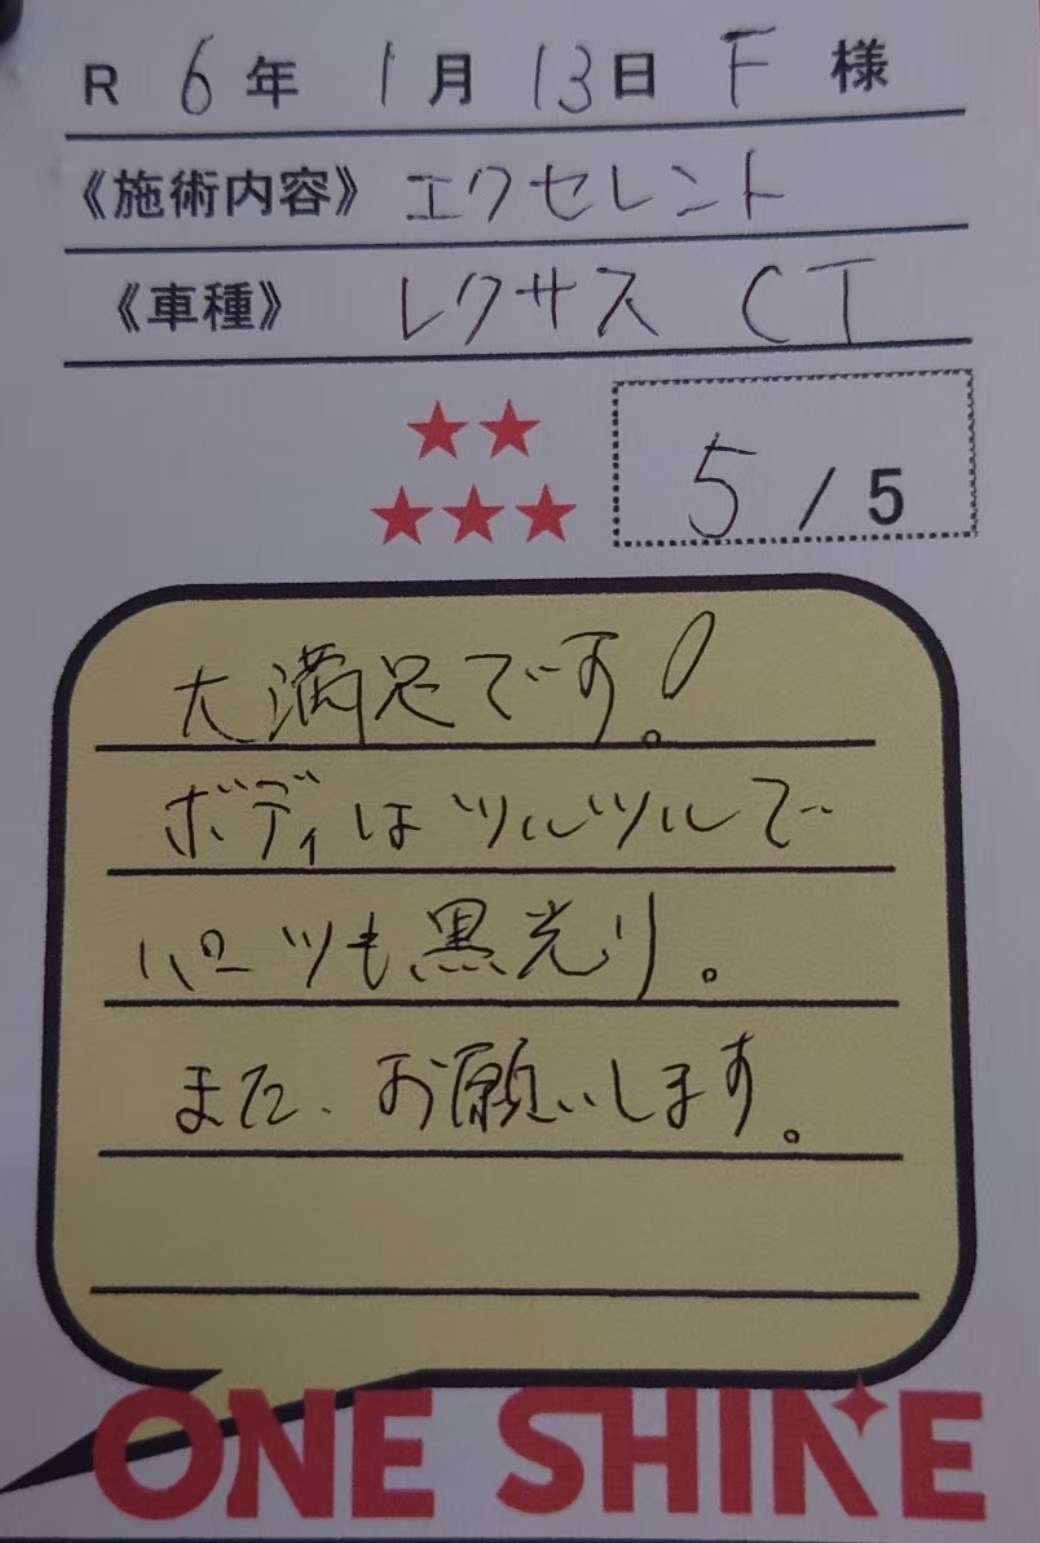 R 6年 1月 13日 F 様
《施術内容》 エクセレント
《車種》 レクサス CT
5 / 5
大満足です!
ボディはツルツルで
パーツも黒光り。
また、お願いします。
ONE SHINE